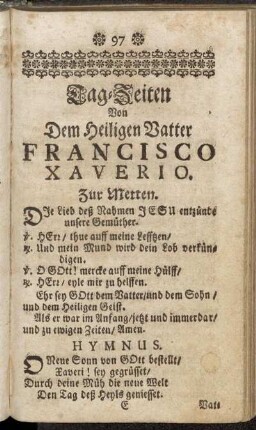 ❋ 97 ❋
Tag-Zeiten
Von
Dem Heiligen Vatter
FRANCISCO
XAVERIO.
Zur Metten.
DIe Lieb deß Nahmen JESU entzünde
unsere Gemüther.
℣. HErr/ thue auff meine Leffzen/
℟. Und mein Mund wird dein Lob verkün-
digen.
℣. O GOtt! mercke auff meine Hülff/
℟. HErr/ eyle mir zu helffen.
Ehr sey GOtt dem Vatter/und dem Sohn/
und dem Heiligen Geist.
Als er war im Anfang/jetzt und immerdar/
und zu ewigen Zeiten/ Amen.
HYMNUS.
O Neue Sonn von GOtt bestellt/
Xaveri! sey gegrüsset/
Durch deine Müh die neue Welt
Den Tag deß Heyls geniesset.
E Vatt